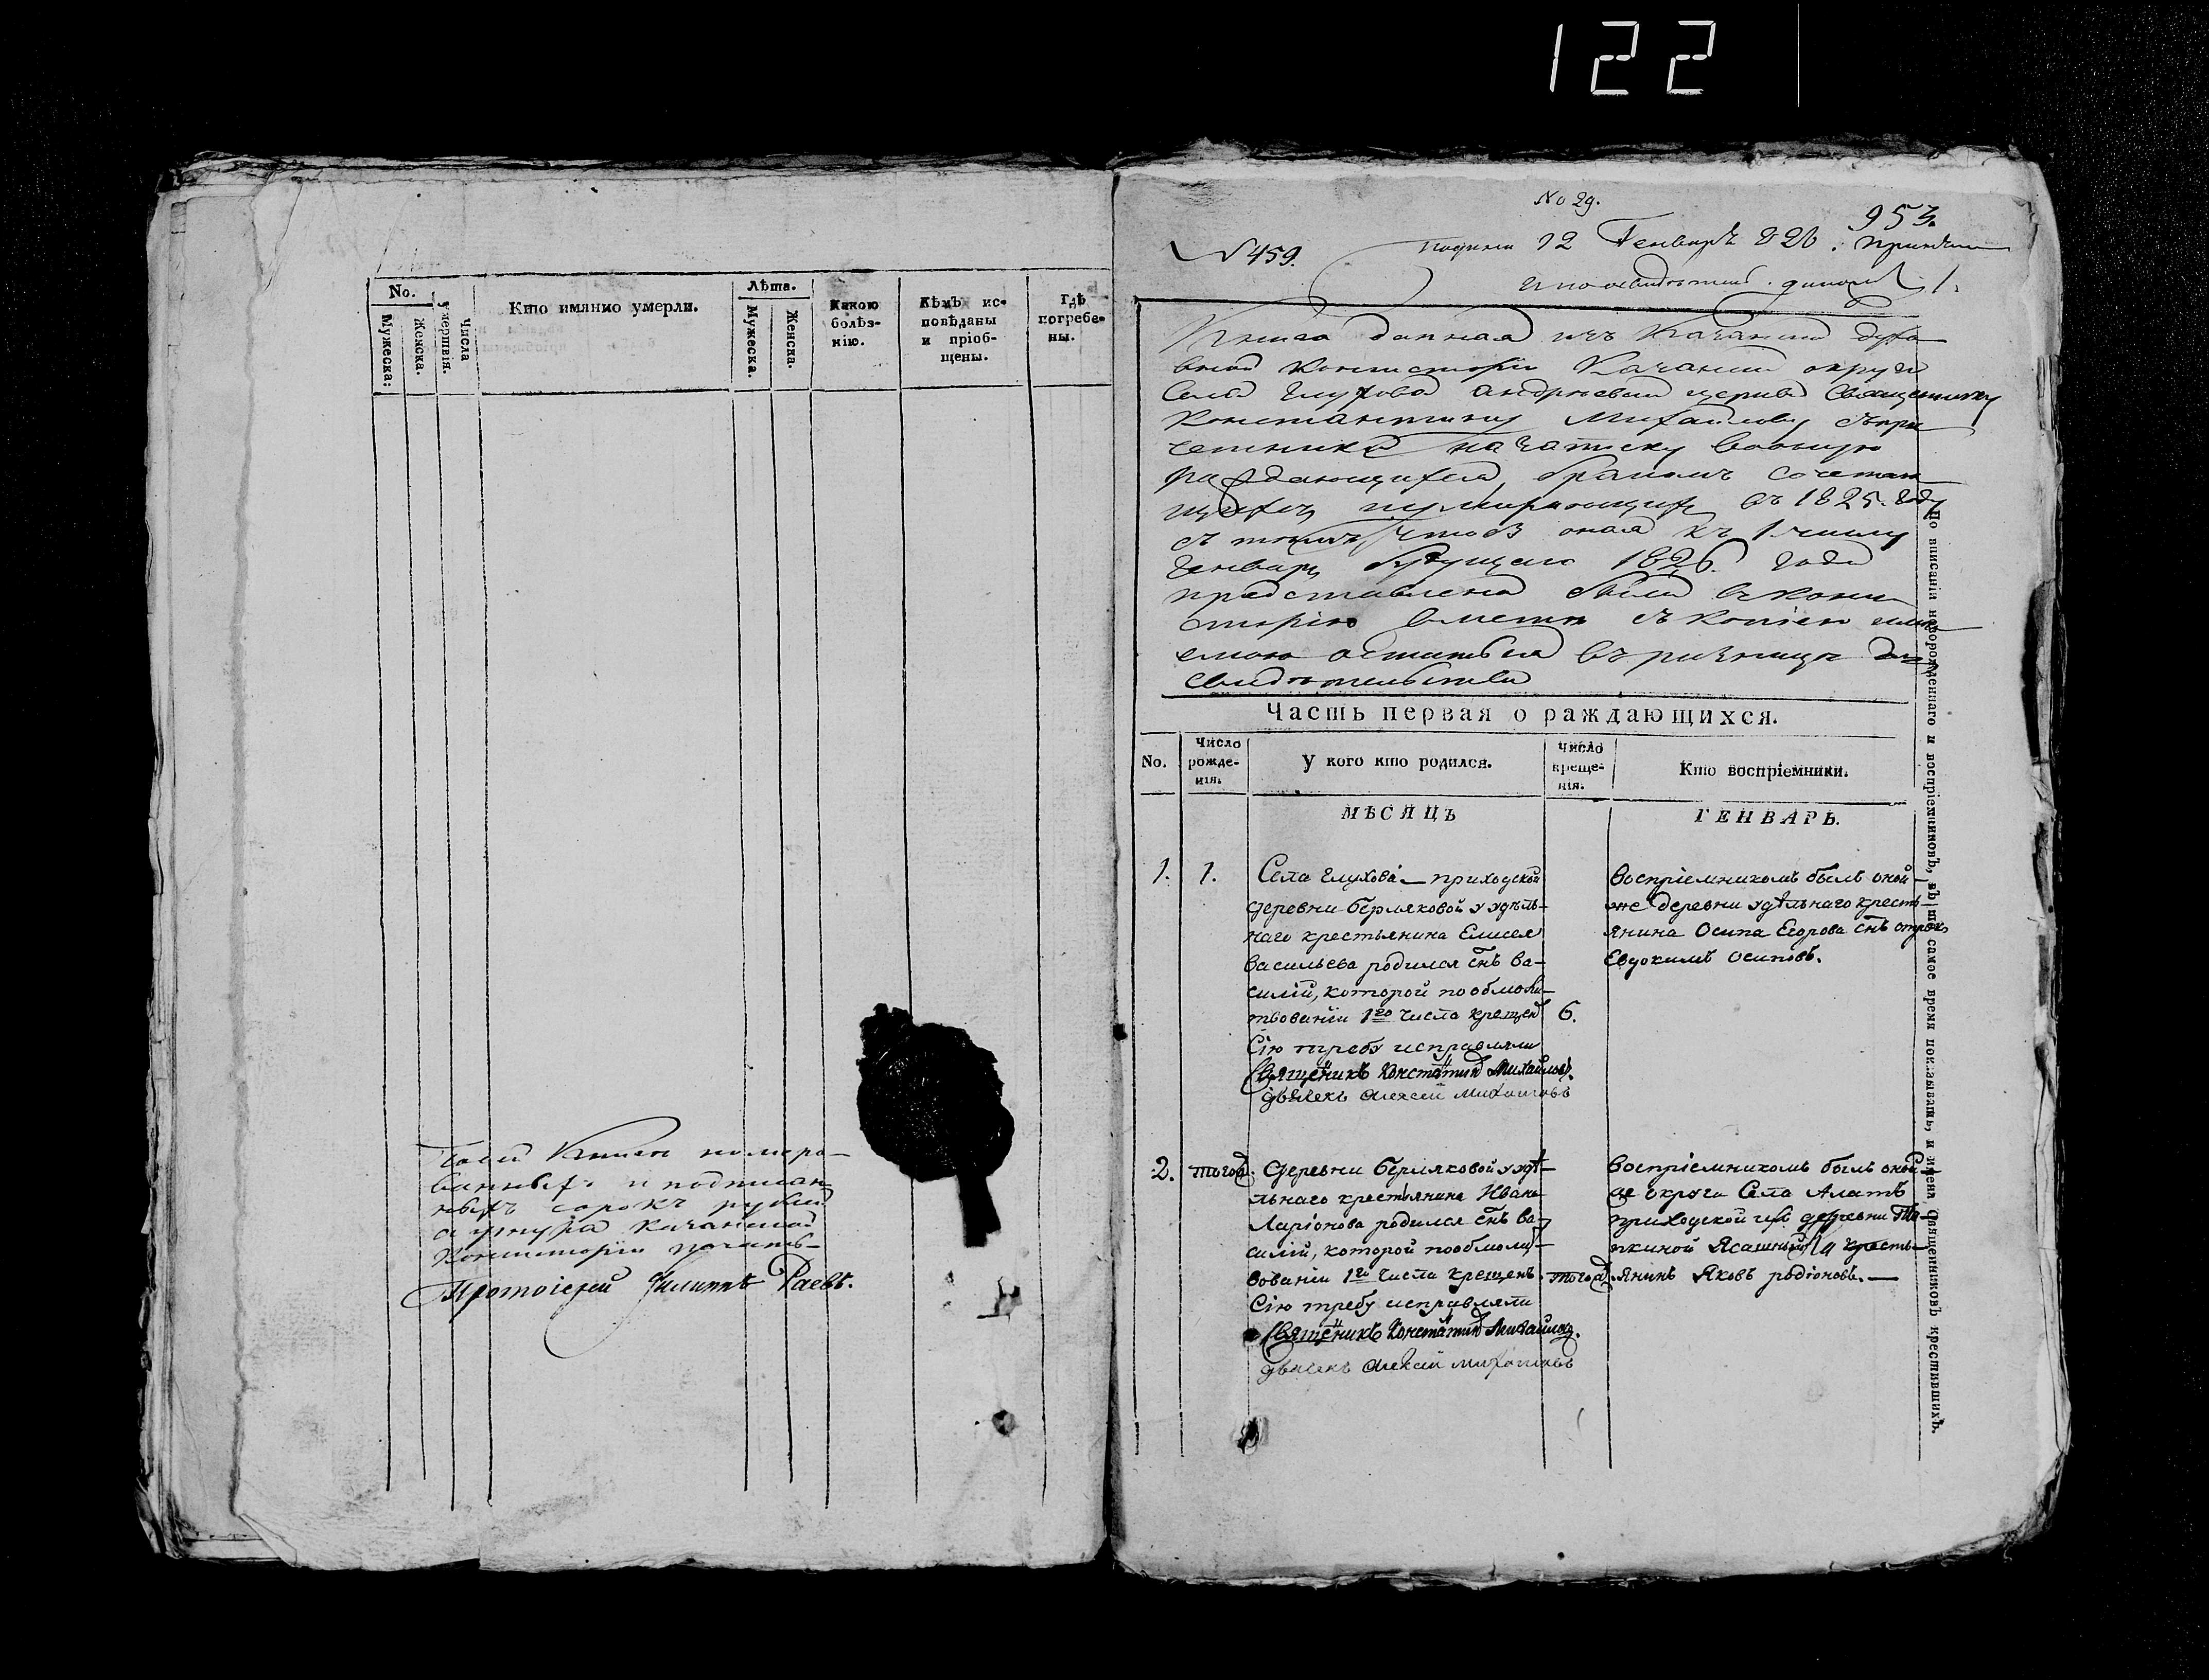 122
No.
Мужеска:
Женска.
Числа умертвія.
Кто имянно умерли.
Лѣта.
Мужеска.
Женска.
Какою
болѣз-
нію.
Кѣмъ ис-
повѣданы
и пріоб-
щены.
Гдѣ
погребе-
ны.
номеро-
ванныхъ и подписан
ныхъ сорокъ
Казанской
Консисторіи печать
Протоіерей Филиппъ Раевъ.
No 29.
953.
N 459.
12 Генваря 826.
1.
Книга данная изъ Казанской духо
вной Консисторіи Казанской округи
Села Глухова Андреевской церкви Священнику
Константину Михайлову съ при
четники на записку въ оную
раждающихся, бракомъ сочетаю
щихся, и умирающихъ въ 1825. году
съ тѣмъ чтобъ оная къ 1 числу
Генваря будущаго 1826. года
представлена была въ конси
сторію вмѣстѣ съ копіею
остаться въ ризницѣ для
свидѣтельства
Часть первая о раждающихся.
No.
Число
рожде-
нія.
У кого кто родился.
Число
креще-
нія.
Кто воспріемники.
МѢСЯЦЪ
ГЕНВАРЬ.
1.
1.
Села Глухова — приходской
деревни Берляковой у удѣль-
наго крестьянина Елисея
Васильева родился снъ Ва-
силій, которой по обмоли-
твованіи 1го числа крещен
6.
Сію требу исправляли
Священикъ Константин Михайлов.
дьячекъ Алексѣй Михайловъ
Воспріемникомъ былъ оной
же деревни удѣльнаго кресть-
янина Осипа Егорова снъ отрокъ
Евдокимъ Осиповъ.
2.
тогож.
Деревни Берляковой у удѣ-
льнаго крестьянина Ивана
Ларіонова родился снъ Ва-
силій, которой по обмолит-
вованіи 1го числа крещенъ.
тогож.
Сію требу исправляли
Священикъ Константин Михайлов.
дьячекъ Алексѣй Михайловъ
Воспріемникомъ былъ оной
же округи Села Алатъ
приходской деревни Тя-
пкиной Ясашной кресть-
янинъ Яковъ родіоновъ. —
По вписаніи новорожденнаго и воспріемниковъ, въ то самое время показывать, и имена священниковъ крестившихъ.